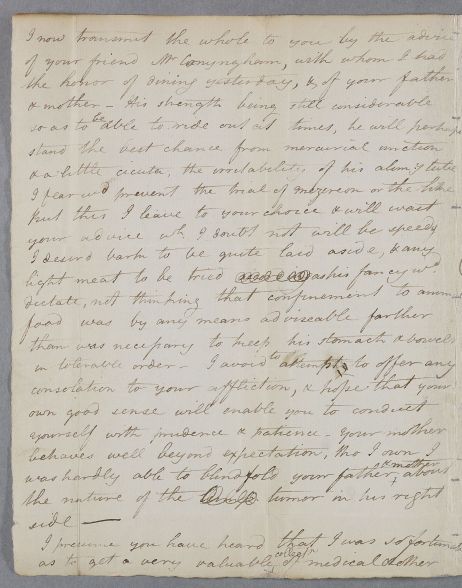 I now transmit the whole to you by the advice
of your friend Mr Conyngham, with whom I had
the honor of dining yesterday, & of your father
& mother – His strength being still considerable
so as to be able to ride out at times, he will perhaps
stand the best chance from mercurial unction
& a little cicuta, the irritability of his alimy tube
I fear wd prevent the trial of mezereon or the like
But this I leave to your choice & will wait
your advice wh. I doubt not will be speedy
I desired bark to be quite laid aside, & any
light meat to be tried as his fancy wd
dictate, not thinking that confinement to anim
food was by any means adviseable farther
than was necessary to keep his stomach & bowels
in tolerable order – I avoid to attempt to offer any
consolation to your affliction, & hope that your
own good sense will enable you to conduct
yourself with prudence & patience – Your mother
behaves well beyond expectation, tho I own I
was hardly able to blindfold your father & mother about
the nature of the tumor on his right
side —
I presume you have heard that I was so fortunate
as to get a very valuable of medical & other